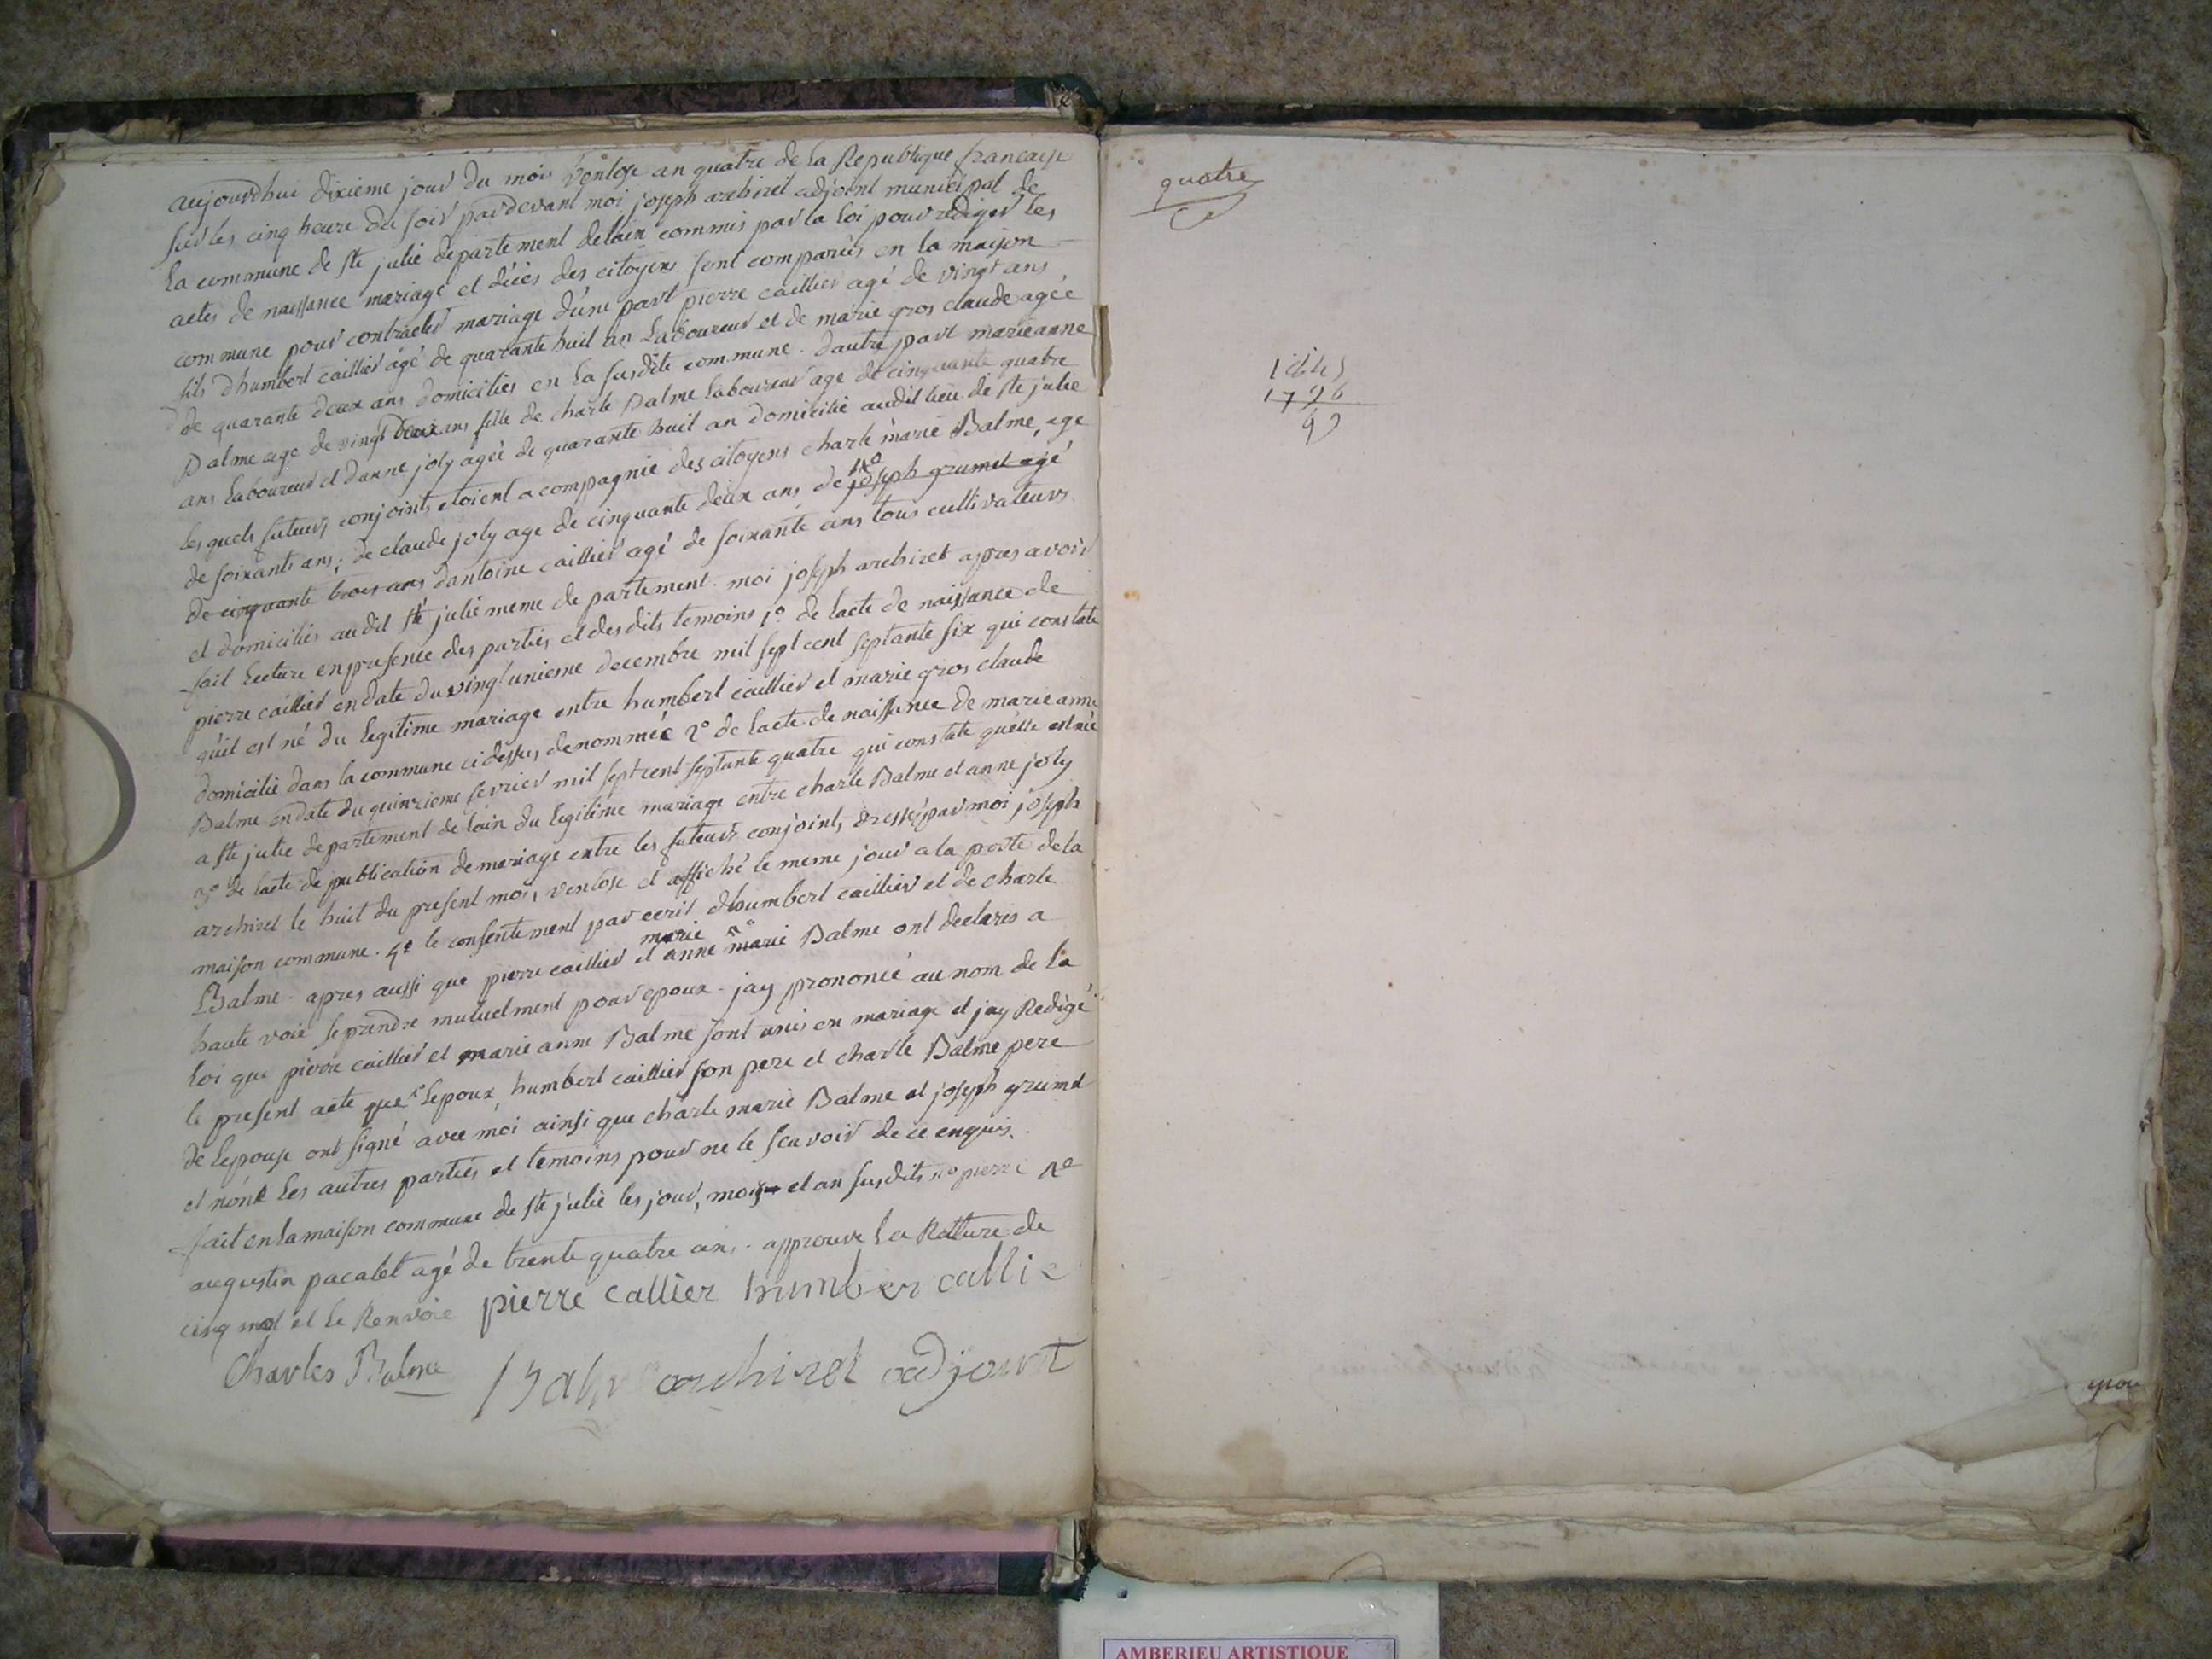 aujourdhui dixieme jour du mois Ventose an quatre de la Republique francaise
sur les cinq heure du soir pardevant moi joseph archirel adjoint municipal de
la commune de ste julie departement delain commis par la loi pour rediger les
actes de naissance mariage et décès des citoyens sont comparus en la maison
commune pour contracter mariage dune part pierre caillier agé de vingt ans
fils dhumbert caillier agé de quarante huit an Laboureur et de marie gros claude agée
de quarante deux ans domiciliés en la susdite commune. dautre part marieanne
Balme age de vingt deux ans fille de charle Balme Laboureur age de cinquante quatre
ans Laboureur et danne joly ageé de quarante huit an domicilié audit lieu de ste julie
les quels futurs conjoints etoient acompagnie des citoyens charle marie Balme, age
de soixante ans; de claude joly age de cinquante deux ans de joseph grumet agé
de cinquante trois ans dantoine caillier agé de soixante ans tous cultivateurs
et domiciliés audit ste julie meme departement. moi joseph archirel apres avoir
fait Lecture enpresence des parties et desdits temoins 1º de lacte de naissance de
pierre caillier endate du vingt unieme decembre mil sept cent septante six qui constate
quil est né du legitime mariage entre humbert caillier et marie gros claude
domicilié dans la commune cidessus denommée 2º de lacte de naissance de marie anne
Balme endate du quinzieme fevrier mil sept cent septante quatre qui constate quelle est née
a ste julie departement de lain du legitime mariage entre charle Balme et anne joly
3º de lacte de publication de mariage entre les futurs conjoints dressé par moi joseph
archirel le huit du present mois, ventose et affiché le meme jour a la porte de la
maison commune. 4º le consentement par ecrit dhumbert caillier et de charle
Balme. apres aussi que pierre caillier et marie anne marie Balme ont declarés a
haute voix se prendre mutuelment pour epoux. jay prononcé au nom de la
Loi que pierre caillier et marie anne Balme sont unis en mariage et jay Redigé
le present acte que Lepoux, humbert caillier son pere et charle Balme pere
de Lepouse ont signé avec moi ainsi que charle marie Balme et joseph grumet
et nont Les autres parties et temoins pour ne le scavoir de ce enquis.
fait en la maison commune de ste julie les jour, mois et an susdits nº pierre
augustin pacalet agé de trente quatre ans. approuve la Rature de
cinq mot et le Renvoie pierre callier humber callie
Charles Balme Balme archirel adjoint
quatre
1796
49